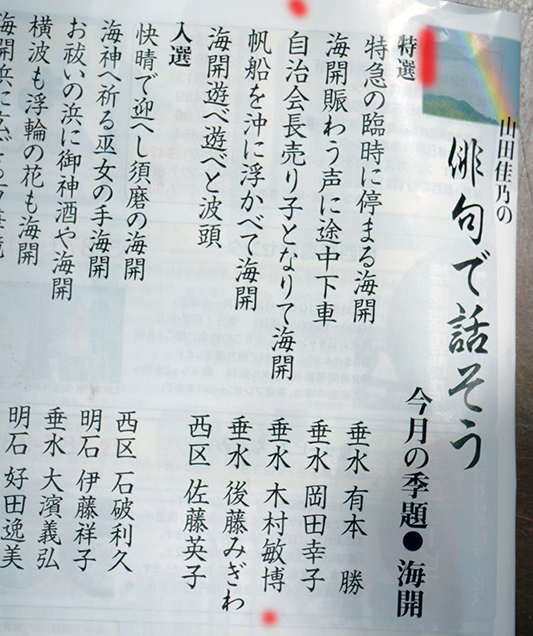 山田佳乃の
俳句で話そう
今月の季題●海開
特選
特急の臨時に停まる海開
垂水 有本 勝
海開賑わう声に途中下車
垂水 岡田幸子
自治会長売り子となりて海開
垂水 木村敏博
帆船を沖に浮かべて海開
垂水 後藤みぎわ
海開遊べ遊べと波頭
西区 佐藤英子
入選
快晴で迎へし須磨の海開
西区 石破利久
海神へ祈る巫女の手海開
明石 伊藤祥子
お祓いの浜に御神酒や海開
垂水 大濱義弘
横波も浮輪の花も海開
明石 好田逸美
海開浜に